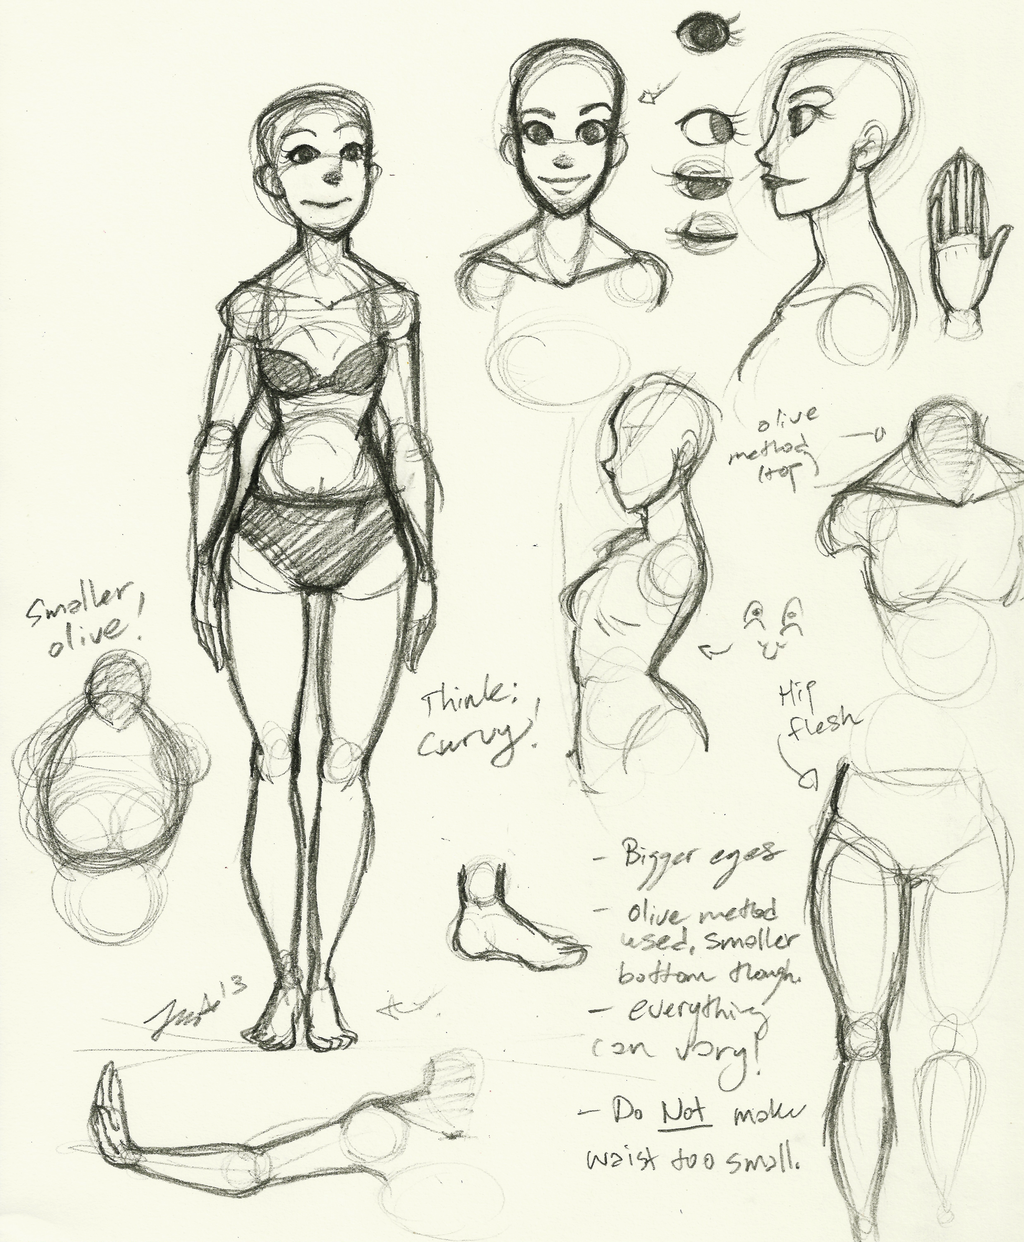 olive
method
(top)
Smaller
olive!
Think:
Curvy!
Hip
flesh
- Bigger eyes
- olive method
used, smaller
bottom though.
- everything
can vary!
- Do Not make
waist too small.
'13